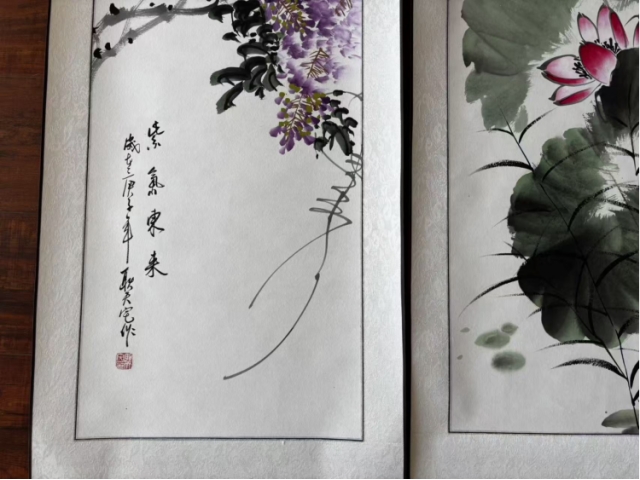 紫氣東来
歲在庚子年
作